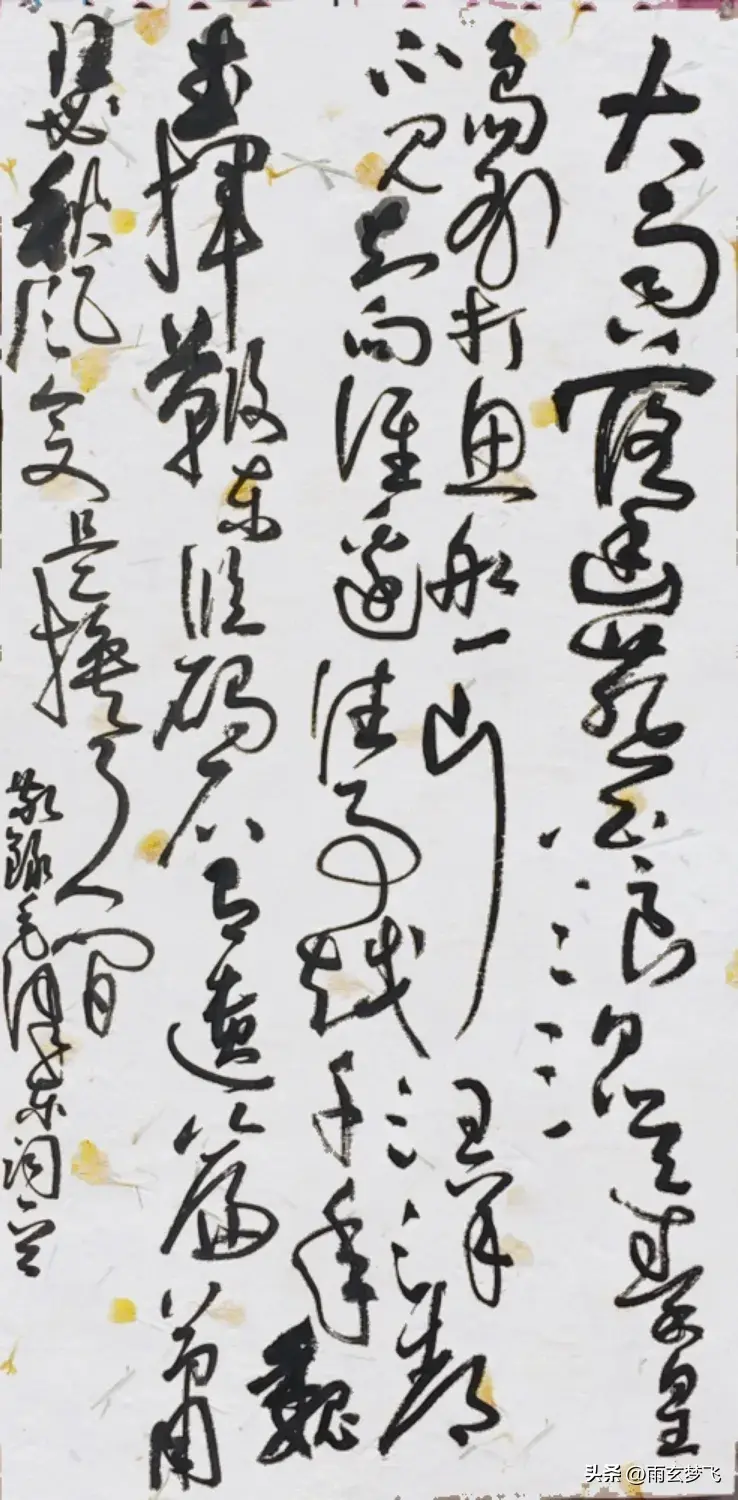 大雨落幽燕白浪滔天秦皇
岛外打鱼船一片汪洋都
不见知向谁边往事越千年魏
武揮鞭东临碣石有遗篇萧
瑟秋风今又是换了人间
敬錄毛泽东词
头条 @雨玄梦飞